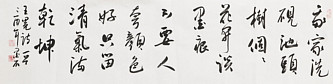 吾家洗
硯池頭
樹個々
花開淡
墨痕
不要人
夸顏色
好只留
清氣滿
乾坤
王冕詩